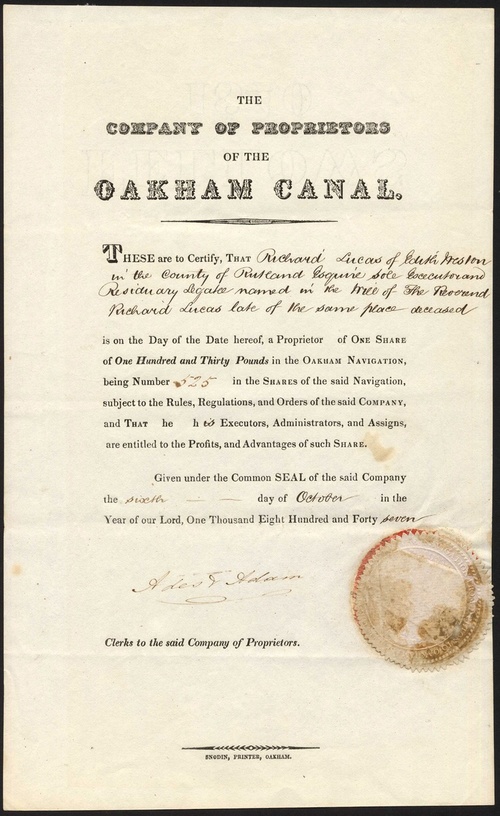 THE
COMPANY OF PROPRIETORS
OF THE
OAKHAM CANAL.
THESE are to Certify, THAT Richard Lucas of Edith Weston
in the County of Rutland Esquire sole Executor and
Residuary Legatee named in the Will of The Reverend
Richard Lucas late of the same place deceased
is on the Day of the Date hereof, a Proprietor of ONE SHARE
of One Hundred and Thirty Pounds in the OAKHAM NAVIGATION,
being Number 525 in the SHARES of the said Navigation,
subject to the Rules, Regulations, and Orders of the said COMPANY,
and THAT he his Executors, Administrators, and Assigns,
are entitled to the Profits, and Advantages of such SHARE.
Given under the Common SEAL of the said Company
the sixth — — day of October in the
Year of our Lord, One Thousand Eight Hundred and Forty seven
Adam
Clerks to the said Company of Proprietors.
SNODIN, PRINTER, OAKHAM.